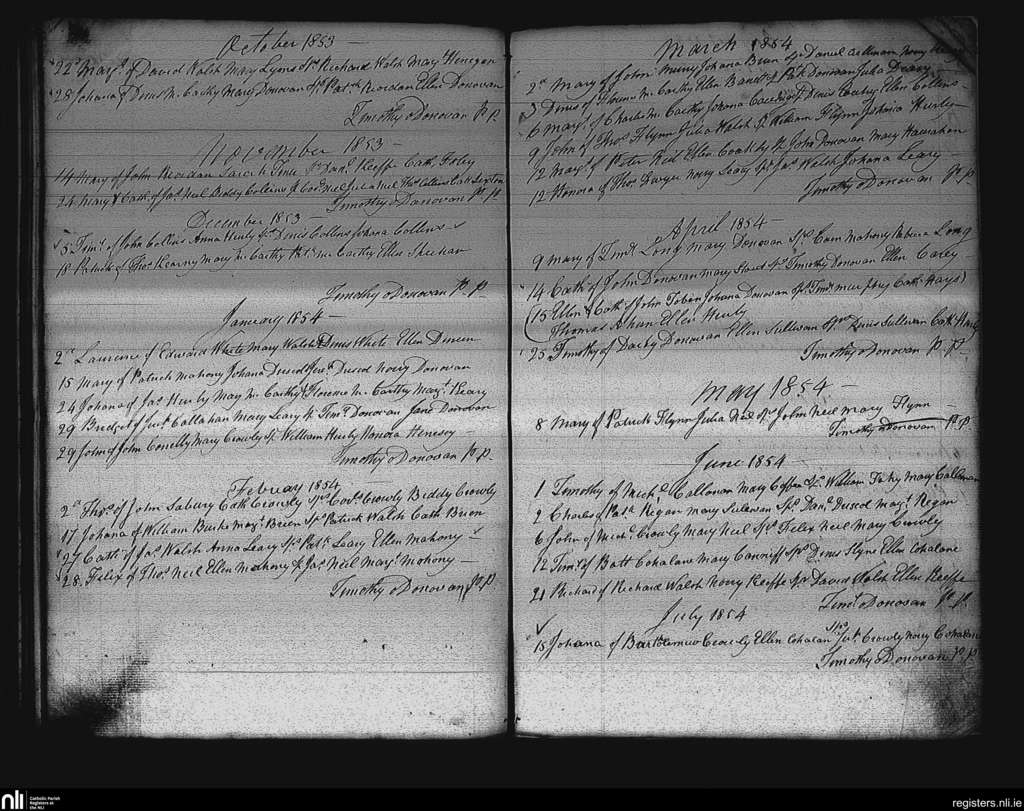 October 1853
22d Mary of David Walsh Mary Lyons Sps Richard Walsh Mary Henegan
28 Johana of Denis Mc Carthy Mary Donovan Sps Patk Riordan Ellen Donovan
Timothy O Donovan P P.
November 1853
14 Mary of John Riordan Sarah Sps Danl Keeffe Cath Foley
24 Mary & Cath of Jas Neil Biddy Collins Sps Cors Neil Julia Neil Thos Collins Cath
Timothy O Donovan P P.
December 1853
5 Timy of John Collins Anna Hurly Sps Denis Collins Johana Collins
18 Patrick of Thos Kearny Mary Mc Carthy Mc Carthy Ellen Sheehan
Timothy O Donovan P P.
January 1854
2d Laurence of Edward White Mary Walsh Denis White Ellen Dineen
15 Mary of Patrick Mahony Johana Driscol Driscol Nory Donovan
24 Johana of Jas Hurly Mary Mc Carthy Florence Mc Carthy Margt Leary
29 Bridget of Callahan Mary Leary Sps Timy Donovan Jane Donovan
29 John of John Conelly Mary Crowly Sps William Hurly Honora Henesey
Timothy O Donovan P P.
February 1854
2d Thos of John Sabury Cath Crowly Sps Corls Crowly Biddy Crowly
17 Johana of William Burke Margt Brien Sps Patrick Walsh Cath Brien
27 Cath of Jas Walsh Anna Leary Sps Patk Leary Ellen Mahony
28 Felix of Thos Neil Ellen Mahony Sps Jas Neil Mary Mahony
Timothy O Donovan P P.
March 1854
2d Mary of John Johana Sps Daniel Nory
5 Denis of Mc Carthy Ellen Sps Patk Donovan Julia Deasy
6 Mary of Charles Mc Carthy Johana Sps Denis Ellen Collins
9 John of Thos Flynn Julia Walsh Sps William Flynn Johana Hurly
12 Mary of Peter Neil Ellen Coakly Sps John Donovan Mary Hanrahan
12 Honora of Thos Dwyer Nory Leary Sps Jas Walsh Johana Leary
Timothy O Donovan P P.
April 1854
9 Mary of Timy Long Mary Donovan Sps Mahony Long
14 Cath of John Donovan Mary Sps Timothy Donovan Ellen Carey
(15 Ellen & Cath of John Tobin Johana Donovan Sps Timy Murphy Cath Hays)
Thomas Ellen Hurly
25 Timothy of Darby Donovan Ellen Sullivan Sps Denis Sullivan Cath
Timothy O Donovan P P.
May 1854
8 Mary of Patrick Flynn Julia Neil Sps John Neil Mary Flynn
Timothy O Donovan P P.
June 1854
1 Timothy of Michl Callanan Mary Sps William Mary Callanan
2 Charles of Patk Regan Mary Sullivan Sps Danl Driscol Margt Regan
6 John of Crowly Mary Neil Sps Felix Neil Mary Crowly
12 Timy of Batt Cohalane Mary Canniff Sps Denis Slyne Ellen Cohalane
21 Richard of Richard Walsh Nory Keeffe Sps David Walsh Ellen Keeffe
Timy O Donovan P. P.
July 1854
15 Johana of Bartolemiew Crowly Ellen Cohalan Sps Crowly Nory Cohalane
Timothy O Donovan P P.
nli
Catholic Parish
Registers at
the NLI
registers.nli.ie